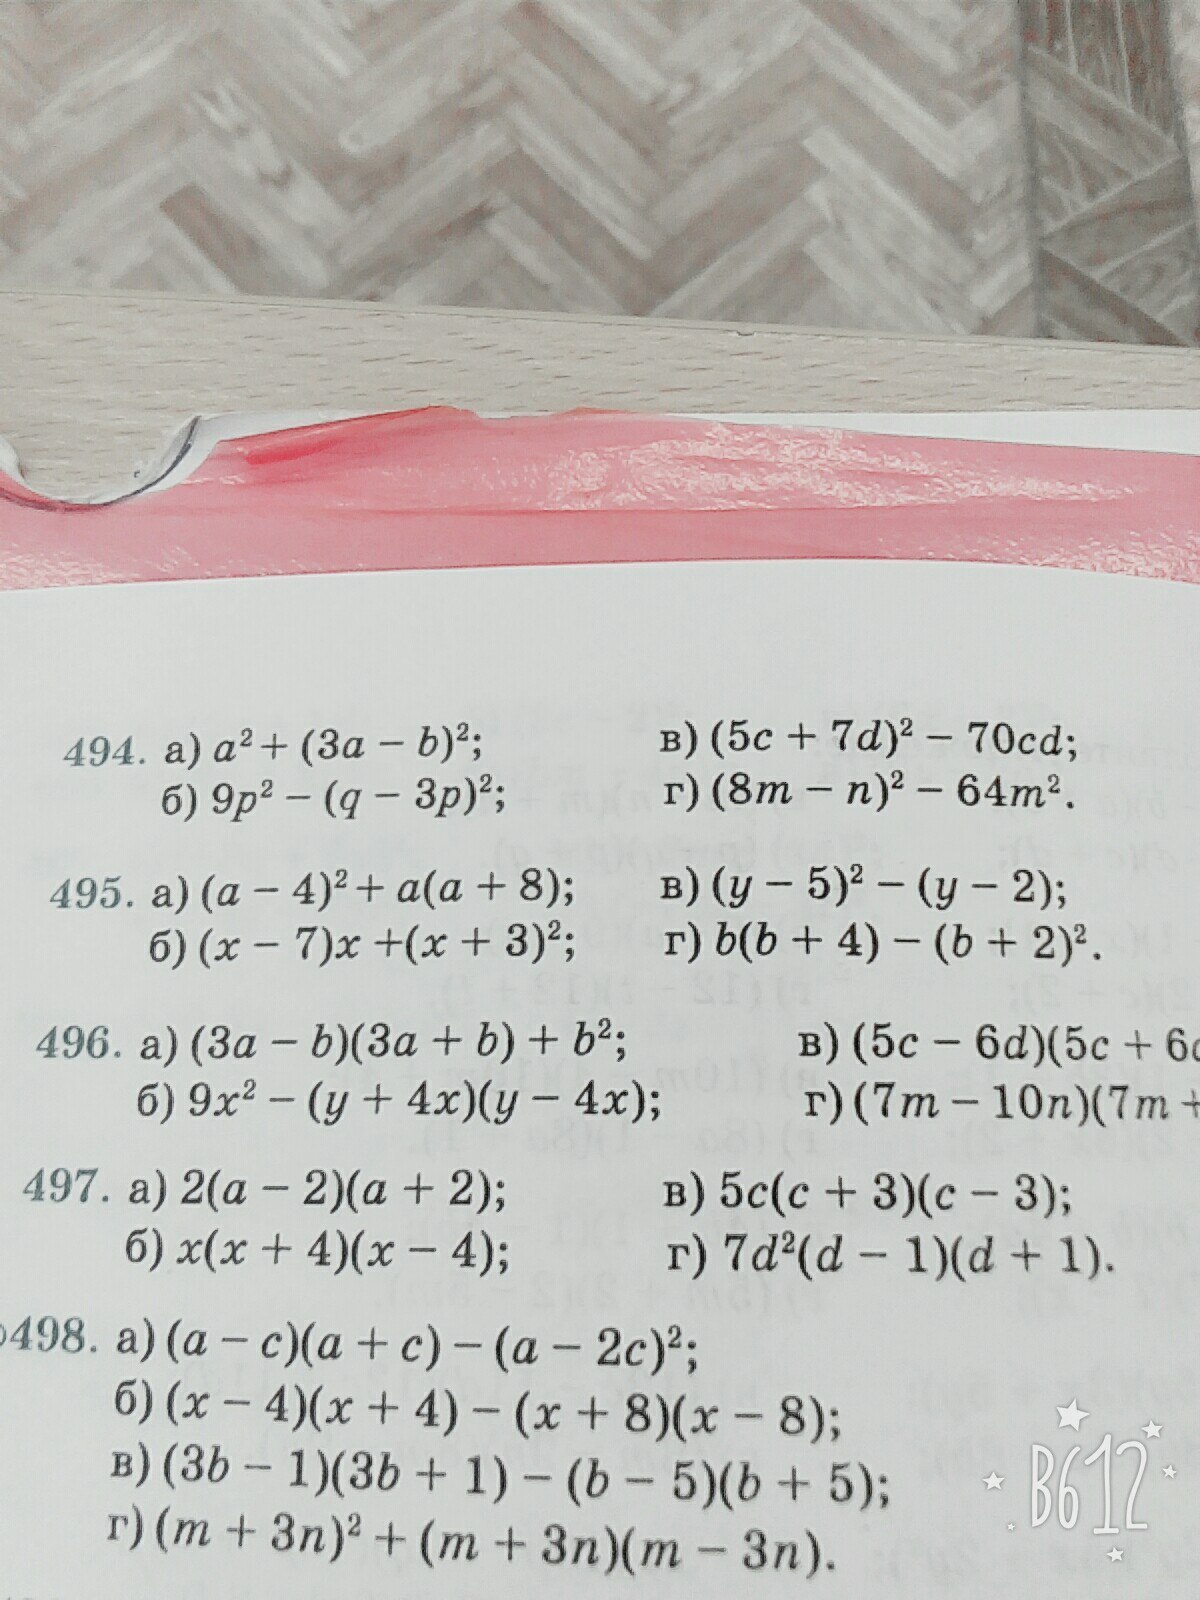 494. а) a² + (3a − b)²; в) (5c + 7d)² − 70cd;
б) 9p² − (q − 3p)²; г) (8m − n)² − 64m².
495. а) (a − 4)² + a(a + 8); в) (y − 5)² − (y − 2);
б) (x − 7)x + (x + 3)²; г) b(b + 4) − (b + 2)².
496. а) (3a − b)(3a + b) + b²; в) (5c − 6d)(5c + 6
б) 9x² − (y + 4x)(y − 4x); г) (7m − 10n)(7m +
497. а) 2(a − 2)(a + 2); в) 5c(c + 3)(c − 3);
б) x(x + 4)(x − 4); г) 7d²(d − 1)(d + 1).
498. а) (a − c)(a + c) − (a − 2c)²;
б) (x − 4)(x + 4) − (x + 8)(x − 8);
в) (3b − 1)(3b + 1) − (b − 5)(b + 5);
г) (m + 3n)² + (m + 3n)(m − 3n).
B612